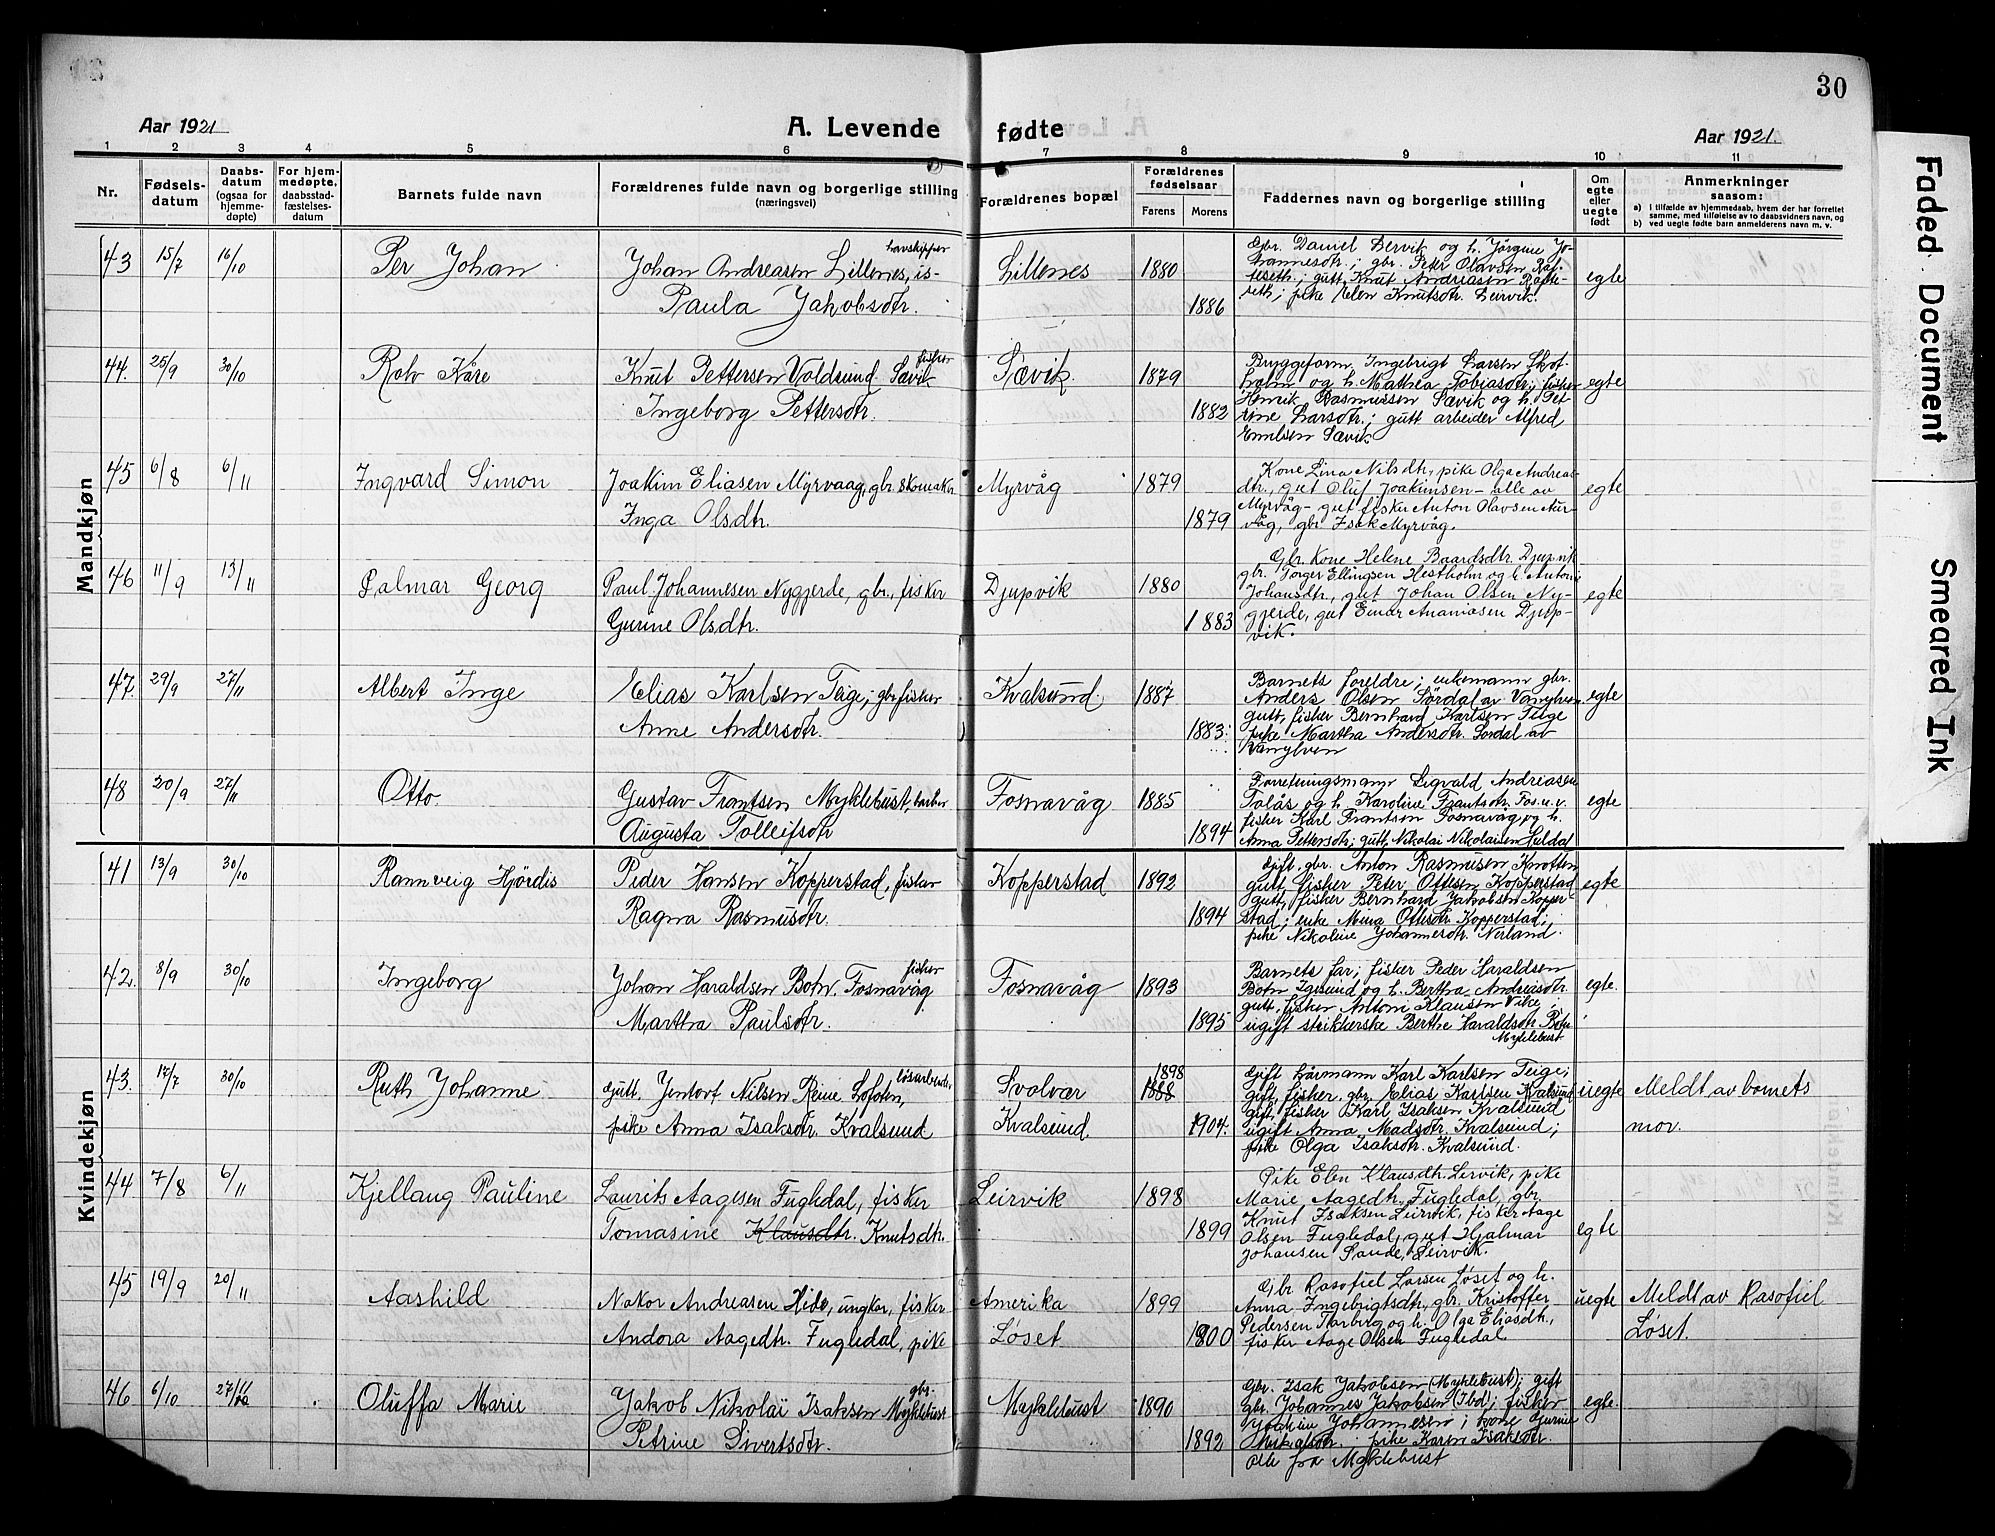 30
Aar 1921
A. Levende fødte
Aar 1921.
1 2 3 4 5 6 7 8 9 10 11
Nr.
Fødsels-
datum
Daabs-
datum
(ogsaa for
hjemme-
døpte)
For hjem-
medøpte,
daabsstad-
fæstelses-
datum
Barnets fulde navn
Forældrenes fulde navn og borgerlige stilling
(næringsvei)
Forældrenes bopæl
Forældrenes
fødselsaar
Farens Morens
Faddernes navn og borgerlige stilling
Om
egte
eller
uegte
født
Anmerkninger
saasom:
a) I tilfælde av hjemmedaab, hvem der har forrettet
samme, med tilføielse av to daabsvidners navn, og
b) ved uegte fødte barn anmelderens navn m. v.
Mandkjøn
43 15/7 16/10 Per Johan
havskipper
Johan Andreasen Lillenes, is-
Paula Jakobsdtr.
Lillenes 1880
1886
Gbr. Daniel Dervik og h. Jørgine Jo-
hannesdtr.; gbr. Peter Olavsen Raf-
teseth; gutt Knut Andreasen Rafte-
seth; pike Elen Knutsdtr. Leirvik.
egte
44. 25/9 30/10 Rolv Kåre
fisker
Knut Pettersen Voldsund Sævik
Ingeborg Pettersdtr.
Sævik. 1879
1882
Bryggeform. Ingebrigt Larsen Skot-
holm og h. Mathea Tobiasdtr; fisker
Henrik Rasmussen Sævik og h. Pet-
rine Larsdtr.; gutt arbeider Alfred
Emilsen Sævik
egte
45 6/8 6/11 Ingvard Simon
Joakim Eliasen Myrvaag, gbr. skomaker
Inga Olsdtr.
Myrvåg 1879
1879
Kone Lina Nilsdtr., pike Olga Andreas-
dtr., gut Oluf Joakimsen - alle av
Myrvåg - gut fisker Anton Olavsen Aur-
våg, gbr Isak Myrvåg.
egte
46 11/9 13/11 Palmar Georg
Paul Johannesen Nygjerde, gbr., fisker
Gurine Olsdtr.
Djupvik 1880
1883
Gbr. Kone Helene Baardsdtr. Djupvik
gbr. Jørger Ellingsen Hestholm og h. Antoni
Johansdtr., gut Johan Olsen Ny-
gjerde, gut Einar Ananiasen Djup-
vik.
egte
47. 29/9 27/11 Albert Inge
Elias Karlsen Teige, gbr fisker
Anne Andersdtr.
Kvalsund. 1887
1883.
Barnets foreldre; enkemann gbr.
Anders Olsen Sørdal av Vanylven
gutt, fisker Bernhard Karlsen Teige
pike Martha Andersdtr. Sørdal av
Vanylven
egte
48 20/9 27/11 Otto.
Gustav Frantsen Myklebust, barber
Augusta Tolleifsdtr
Fosnavåg 1885
1894
Forretningsmann Sigvald Andreasen
Tolås og h. Karoline Frantsdtr. Fosn.v.
fisker Karl Frantsen Fosnavåg og h.
Anna Pettersdtr; gutt, Nikolai Nikolaisen Huldal
egte
Kvindekjøn
41 13/9 30/10 Rannveig Hjørdis
Peder Hansen Kopperstad, fisker
Ragna Rasmusdtr.
Kopperstad 1892
1894
Gift, gbr. Anton Rasmusen Knotten
gutt, fisker Peter Ottesen Kopperstad
gutt, fisker Bernhard Jakobsen Kopper-
stad; enke Mina Ottesdtr. Kopperstad;
pike Nikoline Johannesdtr. Nerland.
egte
42. 8/9 30/10 Ingeborg
fisker
Johan Haraldsen Botn. Fosnavåg
Martha Paulsdtr.
Fosnavåg 1893
1895
Barnets far; fisker Peder Haraldsen
Botn Igesund og h. Bertha Andreasdtr.
gutt, fisker Antoni Klausen Vike;
ugift strikkerske Berthe Haraldsdtr. Botn
Myklebust
egte.
43. 17/7 30/10 Ruth Johanne
løsarbeider
Gutt. Jentoft Nilsen Reine Lofoten,
pike Anna Isaksdtr. Kvalsund.
Svolvær 1898
1888
Kvalsund. 1904.
Gift hårmann Karl Karlsen Teige;
gift, fisker, gbr. Elias Karlsen Kvalsund
gift, fisker Karl Isaksen Kvalsund
ugift Anna Madsdtr. Kvalsund;
pike Olga Isaksdtr. Kvalsund.
uegte
Meldt av barnets
mor.
44 7/8 6/11 Kjellaug Pauline
Laurits Aagesen Fugledal, fisker
Tomasine Klausdtr. Knutsdtr.
Leirvik 1898
1899
Pike Elen Klausdtr. Leirvik, pike
Marie Aagedtr. Fugledal, gbr.
Knut Isaksen Leirvik, fisker Aage
Olsen Fugledal, gut Hjalmar
Johansen Sande, Leirvik.
egte
45 19/9 20/11 Aashild
Nakor Andreasen Hide, ungkar, fisker
Andora Aagedtr. Fugledal, pike
Amerika 1899
Løset 1900
Gbr Rasofiel Larsen Løset og h.
Anna Ingebrigtsdtr., gbr. Kristoffer
Pedersen Tarberg og h. Olga Eliasdtr.,
fisker Aage Olsen Fugledal
uegte
Meldt av Rasofiel
Løset.
46 6/10 27/11 Oluffa Marie
gbr.
Jakob Nikolai Isaksen Myklebust
Petrine Sivertsdtr.
Myklebust 1890
1892
Gbr. Isak Jakobsen (Myklebust); gift
Gbr. Johannes Jakobsen (Ibd); fisker
Joakim Johannesen; kone Gurine
pike Karen Isaksdtr.
alle fra Myklebust
egte.
Faded Document
Smeared Ink